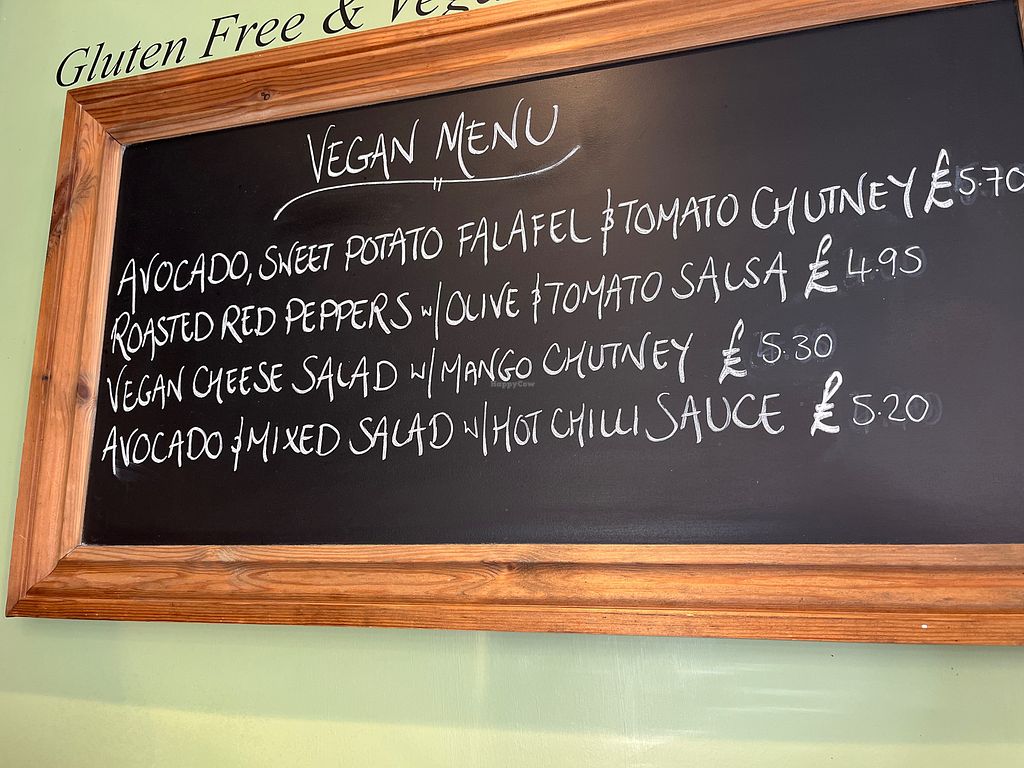 Gluten Free & Vega
VEGAN MENU
AVOCADO, SWEET POTATO FALAFEL & TOMATO CHUTNEY £5.70
ROASTED RED PEPPERS w/ OLIVE & TOMATO SALSA £4.95
VEGAN CHEESE SALAD w/ MANGO CHUTNEY £5.30
HappyCow
AVOCADO & MIXED SALAD w/ HOT CHILLI SAUCE £5.20